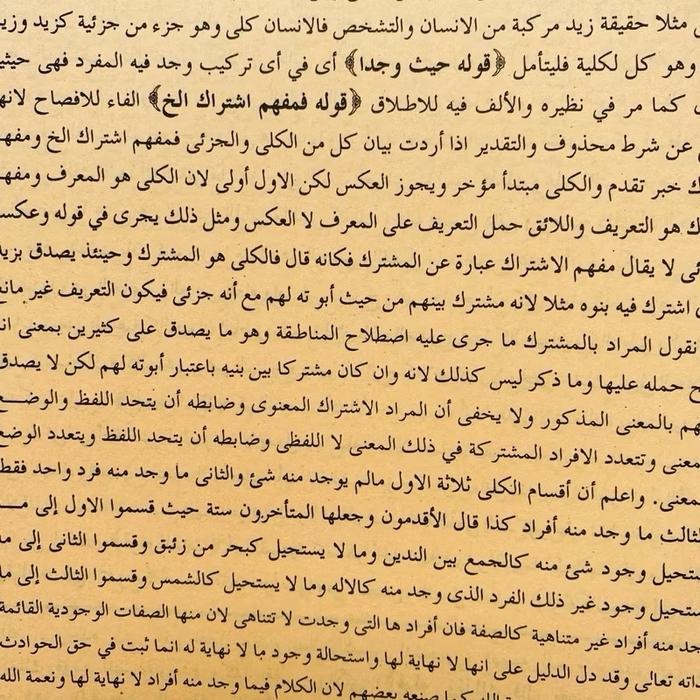 مثلا حقيقة زيد مركبة من الانسان والتشخص فالانسان كلى وهو جزء من جزئية كزيد وزيد
وهو كل لكلية فليتأمل ﴿قوله حيث وجدا﴾ أى في أى تركيب وجد فيه المفرد فهى حيثية
كما مر في نظيره والألف فيه للاطلاق ﴿قوله فمفهم اشتراك الخ﴾ الفاء للافصاح لانها
عن شرط محذوف والتقدير اذا أردت بيان كل من الكلى والجزئى فمفهم اشتراك الخ ومفهم
ك خبر تقدم والكلى مبتدأ مؤخر ويجوز العكس لكن الاول أولى لان الكلى هو المعرف ومفهم
ك هو التعريف واللائق حمل التعريف على المعرف لا العكس ومثل ذلك يجرى في قوله وعكسه
ئى لا يقال مفهم الاشتراك عبارة عن المشترك فكانه قال فالكلى هو المشترك وحينئذ يصدق بزيد
اشترك فيه بنوه مثلا لانه مشترك بينهم من حيث أبو ته لهم مع أنه جزئى فيكون التعريف غير مانع
نقول المراد بالمشترك ما جرى عليه اصطلاح المناطقة وهو ما يصدق على كثيرين بمعنى انه
ح حمله عليها وما ذكر ليس كذلك لانه وان كان مشتركا بين بنيه باعتبار أبوته لهم لكن لا يصدق
هم بالمعنى المذكور ولا يخفى أن المراد الاشتراك المعنوى وضابطه أن يتحد اللفظ والوضع
معنى وتتعدد الافراد المشتركة في ذلك المعنى لا اللفظى وضابطه أن يتحد اللفظ ويتعدد الوضع
معنى. واعلم أن أقسام الكلى ثلاثة الاول مالم يوجد منه شئ والثانى ما وجد منه فرد واحد فقط
لثالث ما وجد منه أفراد كذا قال الأقدمون وجعلها المتأخرون ستة حيث قسموا الاول إلى مـــا
ستحيل وجود شئ منه كالجمع بين الندين وما لا يستحيل كبحر من زئبق وقسموا الثانى إلى ما
ستحيل وجود غير ذلك الفرد الذى وجد منه كالاله وما لا يستحيل كالشمس وقسموا الثالث إلى ما
جد منه أفراد غير متناهية كالصفة فان أفراد ها التى وجدت لا تتناهى لان منها الصفات الوجودية القائمة
اته تعالى وقد دل الدليل على انها لا نهاية لها واستحالة وجود ما لا نهاية له انما ثبت في حق الحوادث
كما صنعه بعضهم لان الكلام فيما وجد منه أفراد لا نهاية لها ونعمة الله